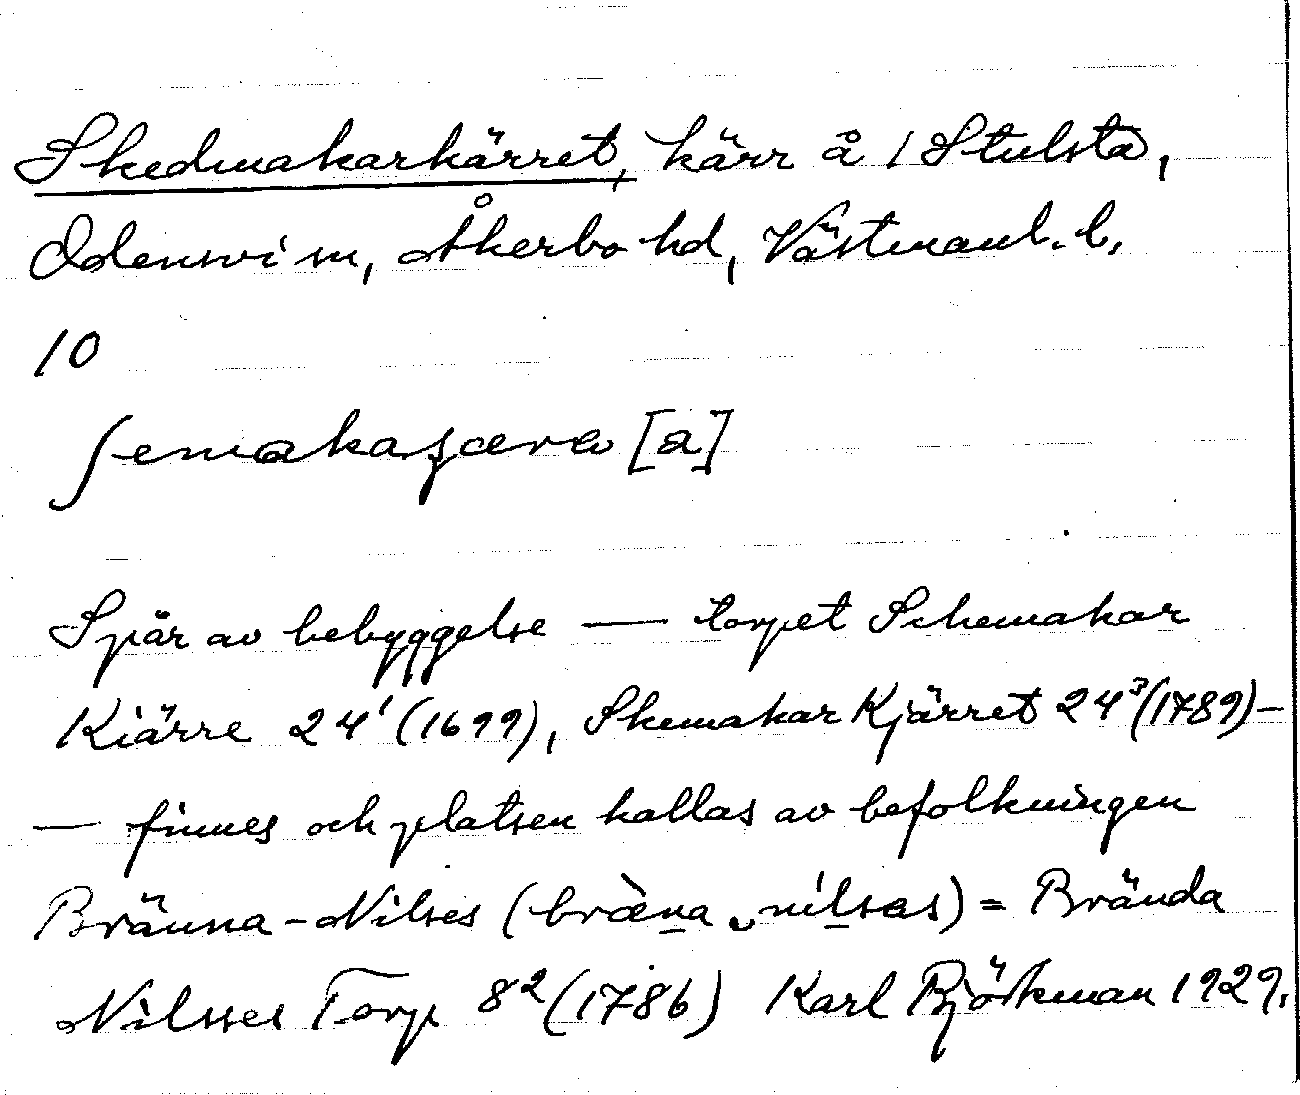 Skedmakarkärret, kärr å / Stulsta,
Odensvi sn, Åkerbo hd, Västmanl. l.
10
ʃemakaʂæra [a]
Spår av bebyggelse — torpet Schemakar
Kiärre 24¹ (1699), Skemakar Kjärret 24³ (1789) –
— finnes och platsen kallas av befolkningen
Bränna-Nilses (bræ̀na ˬnílsas) = Brända
Nilsses Torp 8² (1786) Karl Björkman 1929.